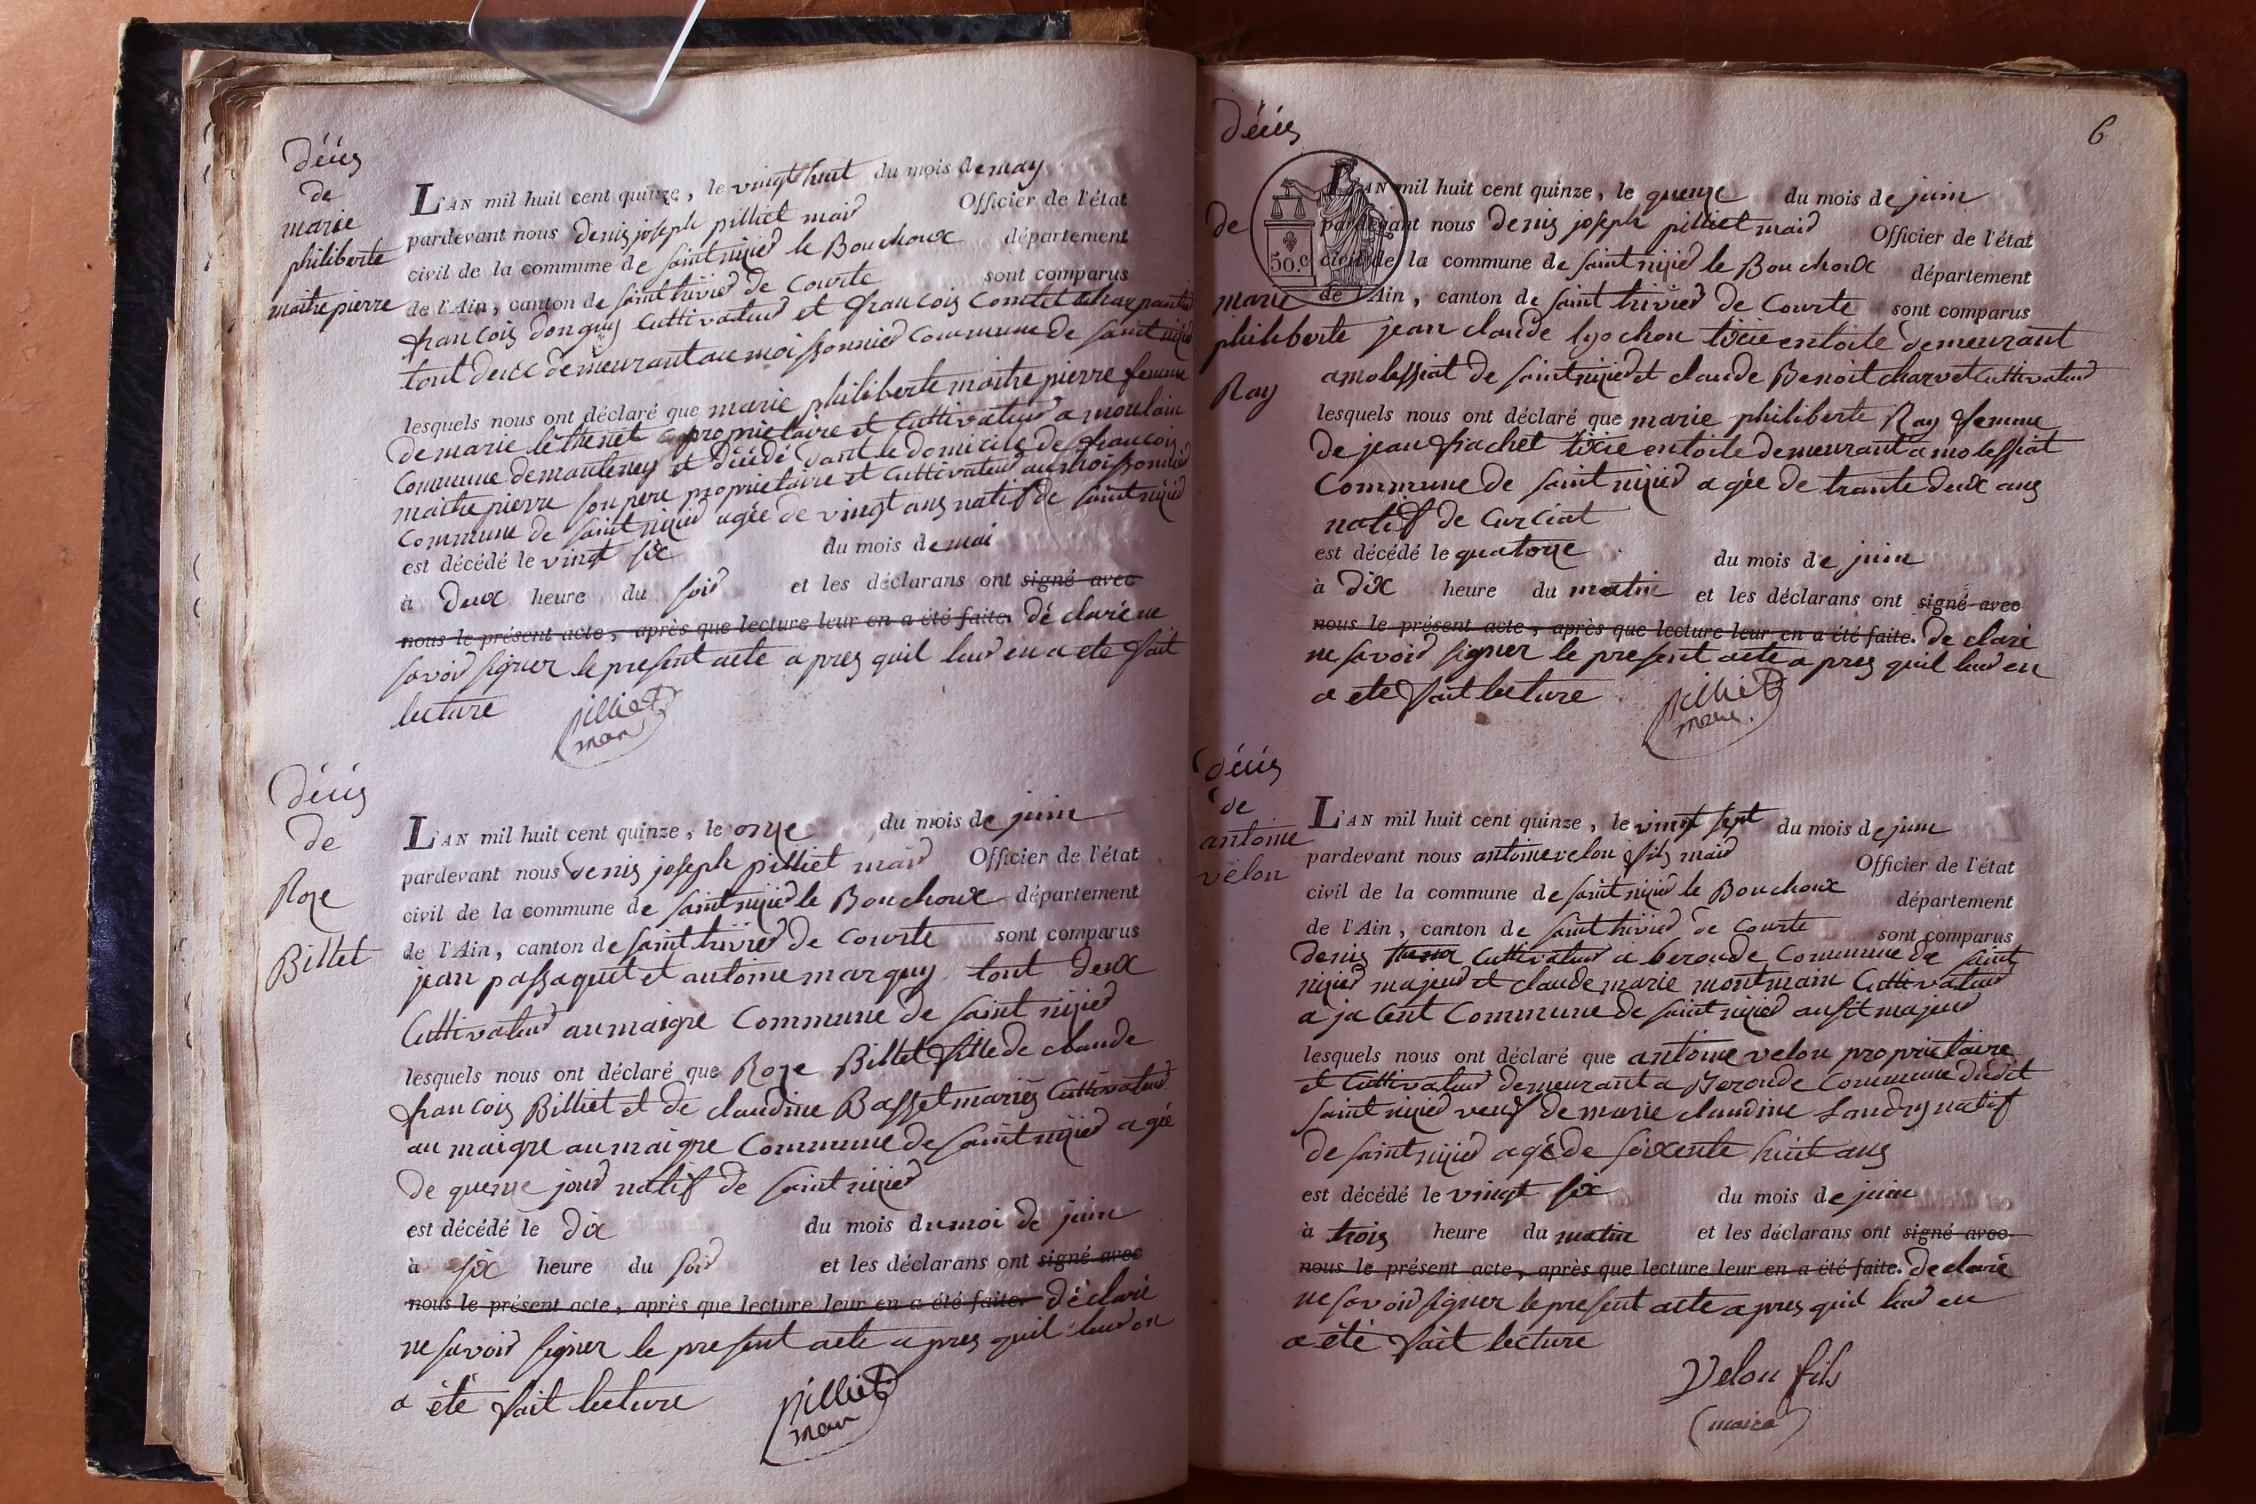 décés
de
marie
philiberte
maitre pierre
L'AN mil huit cent quinze, le vingt huit du mois de may
pardevant nous denis joseph pilliet maid Officier de l'état
civil de la commune de saint nizied le Bouchoux département
de l'Ain, canton de saint trivied de Courte sont comparus
francois donguy Cuttivateud et francois Comtet
tout deux demeurant au moissonnied Commune de saint nizied
lesquels nous ont déclaré que marie philiberte maitre pierre femme
de marie léthenet propriétaire et Cuttivateud a moulain
Commune de mantenay et décédé dant le domicile de francois
maitre pierre son pere proprietaire et Cuttivateud au moissonnied
Commune de saint nizied agée de vingt ans natif de saint nizied
est décédé le vingt six du mois de mai
à deux heure du soid et les déclarans ont signé avec
nous le présent acte, après que lecture leur en a été faite. dé claré ne
savoid signer le present acte apres quil leud en a ete fait
lecture pilliet
maid
décés
de
Roze
Billet
L'AN mil huit cent quinze, le onze du mois de juin
pardevant nous denis joseph pilliet maid Officier de l'état
civil de la commune de saint nizied le Bouchoux département
de l'Ain, canton de saint trivied de Courte sont comparus
jean passaquet et antoine marguy tout deux
Cuttivateud au maigre Commune de saint nizied
lesquels nous ont déclaré que Roze Billet fille de claude
francois Billiet et de claudine Basset mariés Cuttivateud
au maigre au maigre Commune de saint nizied agée
de quenze joud natif de saint nizied
est décédé le dix du mois du moi de juin
à six heure du soid et les déclarans ont signé avec
nous le présent acte, après que lecture leur en a été faite. déclaré
ne savoid signer le present acte apres quil leud en
a été fait lecture pilliet
maid
6
décés
de
marie
philiberte
Ray
50.c
L'AN mil huit cent quinze, le quenze du mois de juin
pardevant nous denis joseph pilliet maid Officier de l'état
civil de la commune de saint nizied le Bouchoux département
de l'Ain, canton de saint trivied de Courte sont comparus
jean claude lyochon tixie en toile demeurant
a molessiat de saint nizied et claude Benoit charvet Cuttivateud
lesquels nous ont déclaré que marie philiberte Ray femme
de jean fiachet tixie en toile demeurant a molessiat
Commune de saint nizied agée de trante deux ans
natif de Curciat
est décédé le quatorze du mois de juin
à dix heure du matin et les déclarans ont signé avec
nous le présent acte, après que lecture leur en a été faite. de claré
ne savoid signer le present acte apres quil leud en
a ete fait lecture pilliet
maire.
décés
de
antoine
velon
L'AN mil huit cent quinze, le vingt sept du mois de juin
pardevant nous antoine velon fils maid Officier de l'état
civil de la commune de saint nizied le Bouchoux département
de l'Ain, canton de saint trivied de Courte sont comparus
denis Cuttivateud a beronde Commune de saint
nizied majeud et claude marie montmain Cuttivateud
a jacent Commune de saint nizied ausit majeud
lesquels nous ont déclaré que antoine velon proprietaire
et Cuttivateud demeurant a Beronde Commune dudit
saint nizied veuf de marie claudine Landry natif
de saint nizied agé de soixente huit ans
est décédé le vingt six du mois de juin
à trois heure du matin et les déclarans ont signé avec
nous le présent acte, après que lecture leur en a été faite. declaré
ne savoid signer le present acte apres quil leud en
a été fait lecture
Velon fils
(maire)